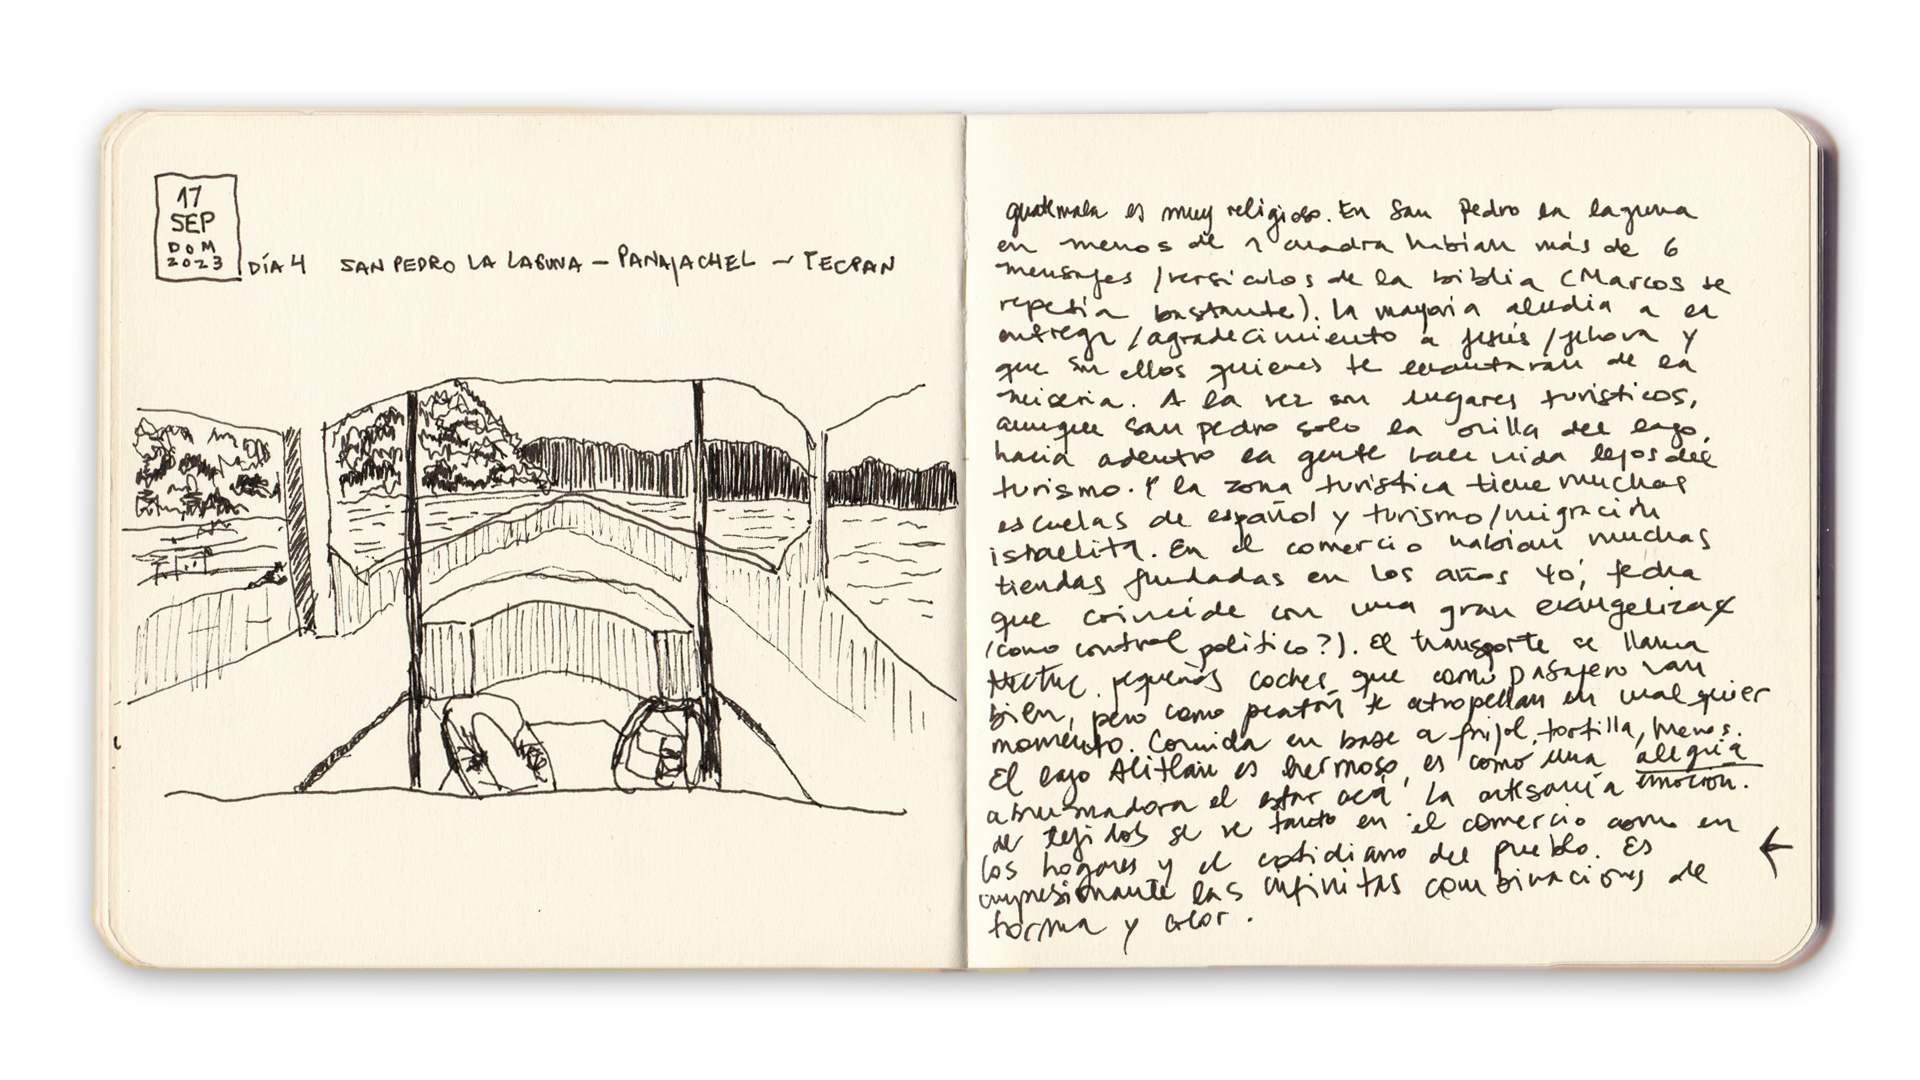 17
SEP
DOM
2023
DÍA 4 SAN PEDRO LA LAGUNA – PANAJACHEL – TECPAN
guatemala es muy religioso. En San Pedro la laguna
en menos de 1 cuadra habían más de 6
mensajes / versículos de la biblia (Marcos se
repetía bastante). La mayoría aludía a la
entrega / agradecimiento a Jesús / Jehova y
que son ellos quienes te levantaran de la
miseria. A la vez son lugares turísticos,
aunque San pedro solo la orilla del lago,
hacia adentro la gente hace vida lejos del
turismo. Y la zona turística tiene muchas
escuelas de español y turismo/migración
israelita. En el comercio habían muchas
tiendas fundadas en los años 40', fecha
que coincide con una gran
(como control político?). El transporte se llama
pequeños coches que como pasajero van
bien, pero como peatón te atropellan en cualquier
momento. Comida en base a frijol, tortilla, huevos.
El lago Atitlan es hermoso, es como una alegria
abrumadora el estar acá. La artesanía emoción.
de tejidos se ve tanto en el comercio como en
los hogares y el cotidiano del pueblo. Es ←
impresionante las infinitas combinaciones de
forma y color.